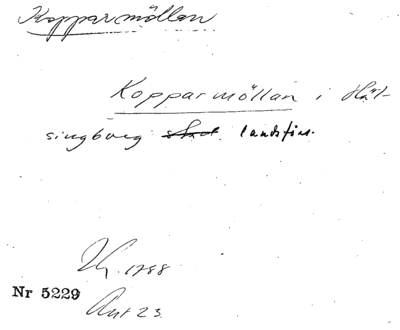 Kopparmöllan
Kopparmöllan i Häl-
singborg stad. landsförs.
Kg. 1788
Nr 5229
Ant 23.